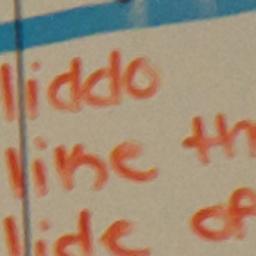 liddo
line th
lide of